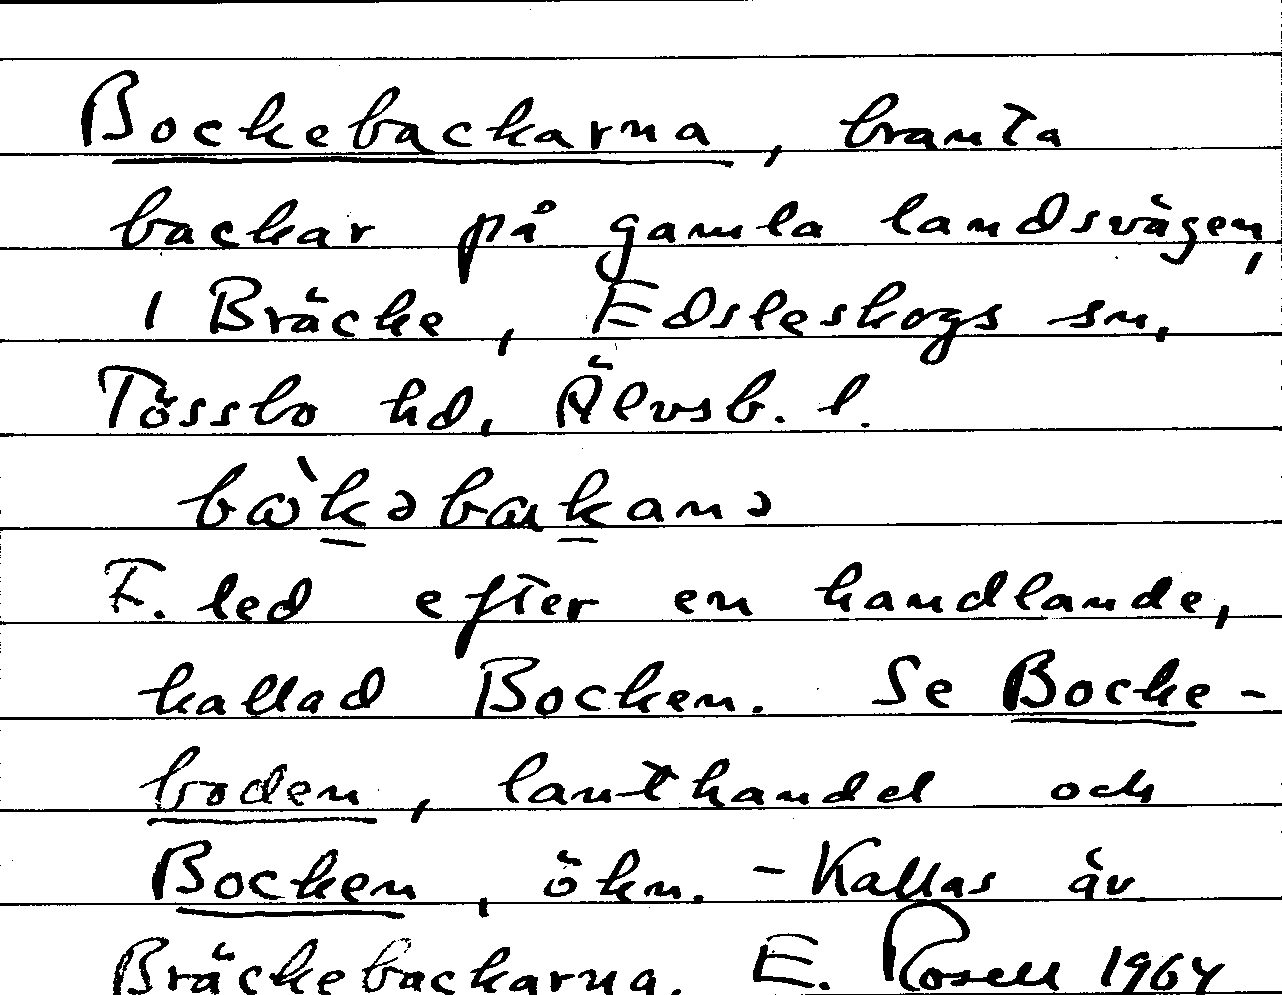 Bockebackarna, branta
backar på gamla landsvägen,
i Bräcke, Edsleskogs sn,
Tössbo hd, Älvsb. l.
F. led efter en handlande,
kallad Bocken. Se Bocke-
boden, lanthandel och
Bocken, ökn. - Kallas äv
Bräckebackarna. E. Rosell 1964